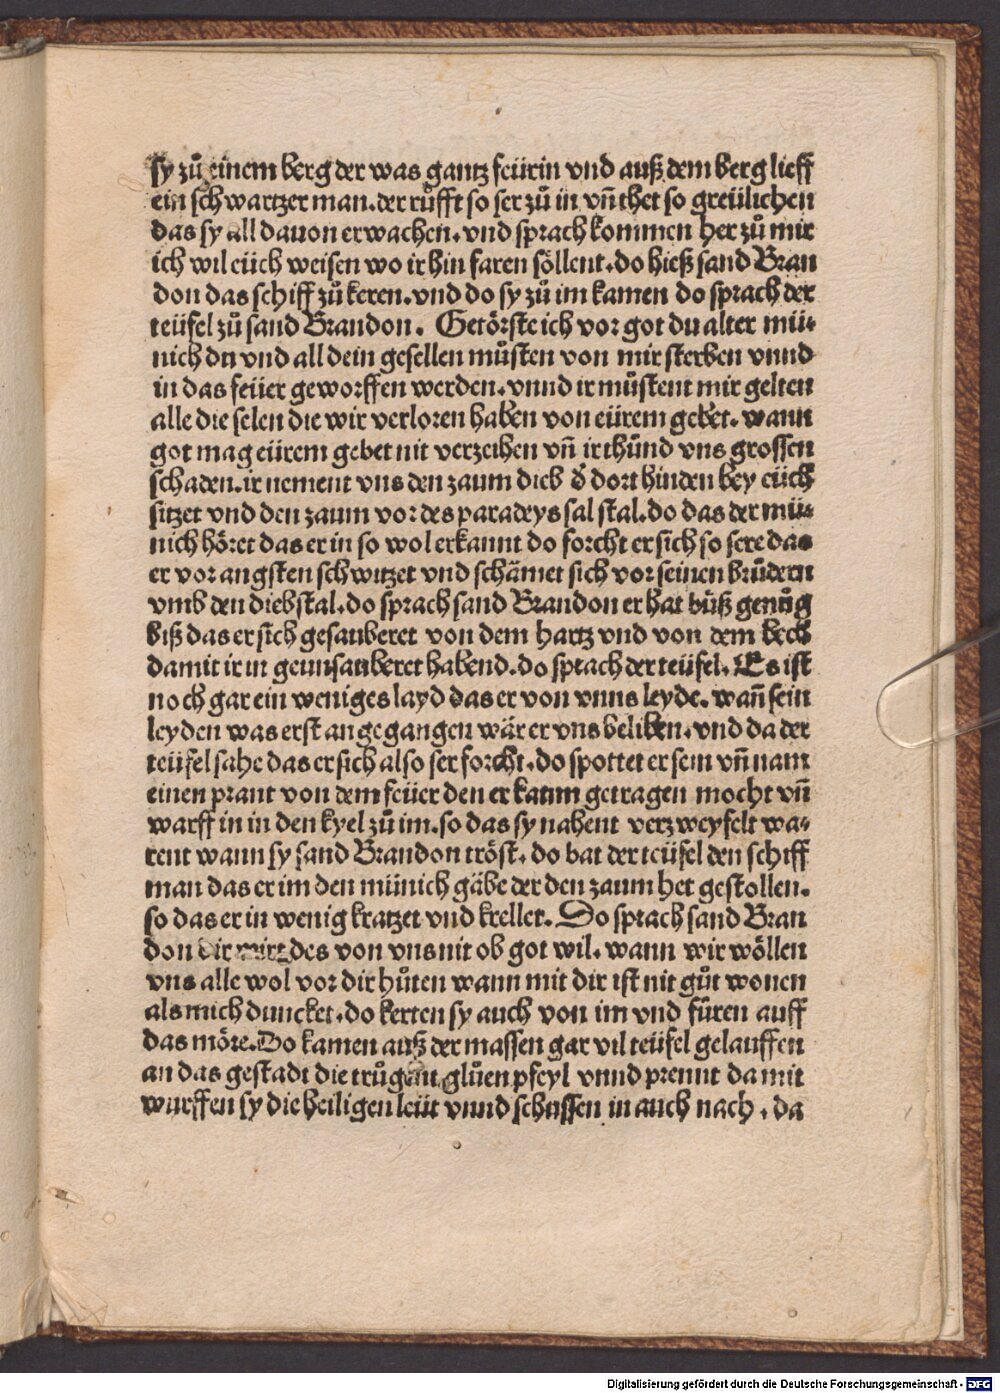 sy zů einem berg der was gantz feürin vnd auß dem berg lieff
ein schwartzer man. der růfft so ser zů in vn̄ thet so greülichen
das sy all dauon erwachen. vnd sprach kommen her zů mir
ich wil eüch weisen wo ir hin faren söllent. do hieß sand Bran
don das schiff zů keren. vnd do sy zů im kamen do sprach der
teüfel zů sand Brandon. Getörste ich vor got du alter mü⸗
nich du vnd all dein gesellen müsten von mir sterben vnnd
in das feüer geworffen werden. vnnd ir müstent mir gelten
alle die selen die wir verloren haben von eürem gebet. wann
got mag eürem gebet nit verzeihen vn̄ ir thůnd vns grossen
schaden. ir nement vns den zaum dieb d̄ dort hinden bey eüch
sitzet vnd den zaum vor des paradeys sal stal. do das der mü⸗
nich höret das er in so wol erkannt do forcht er sich so sere das
er vor angsten schwitzet vnd schämet sich vor seinen brůdern
vmb den diebstal. do sprach sand Brandon er hat bůß genůg
biß das er sich gesauberet von dem hartz vnd von dem bech
damit ir in geunsauberet habend. do sprach der teüfel. Es ist
noch gar ein weniges layd das er von vnns leyde. wan̄ sein
leyden was erst angegangen wär er vns beliben. vnd da der
teüfel sahe das er sich also ser forcht. do spottet er sein vn̄ nam
einen prant von dem feüer den er kaum getragen mocht vn̄
warff in in den kyel zů im. so das sy nahent verzweyfelt wa⸗
rent wann sy sand Brandon tröst. do bat der teüfel den schiff
man das er im den münich gäbe der den zaum het gestollen.
so das er in wenig kratzet vnd kreller. Do sprach sand Bran
don dir wirt des von vns nit ob got wil. wann wir wöllen
vns alle wol vor dir hůten wann mit dir ist nit gůt wonen
als mich duncket. do kerten sy auch von im vnd fůren auff
das möre. Do kamen auß der massen gar vil teüfel gelauffen
an das gestadt die trůgen glůen pfeyl vnnd prennt damit
wurffen sy die heiligen leüt vnnd schussen in auch nach. da
Digitalisierung gefördert durch die Deutsche Forschungsgemeinschaft - DFG